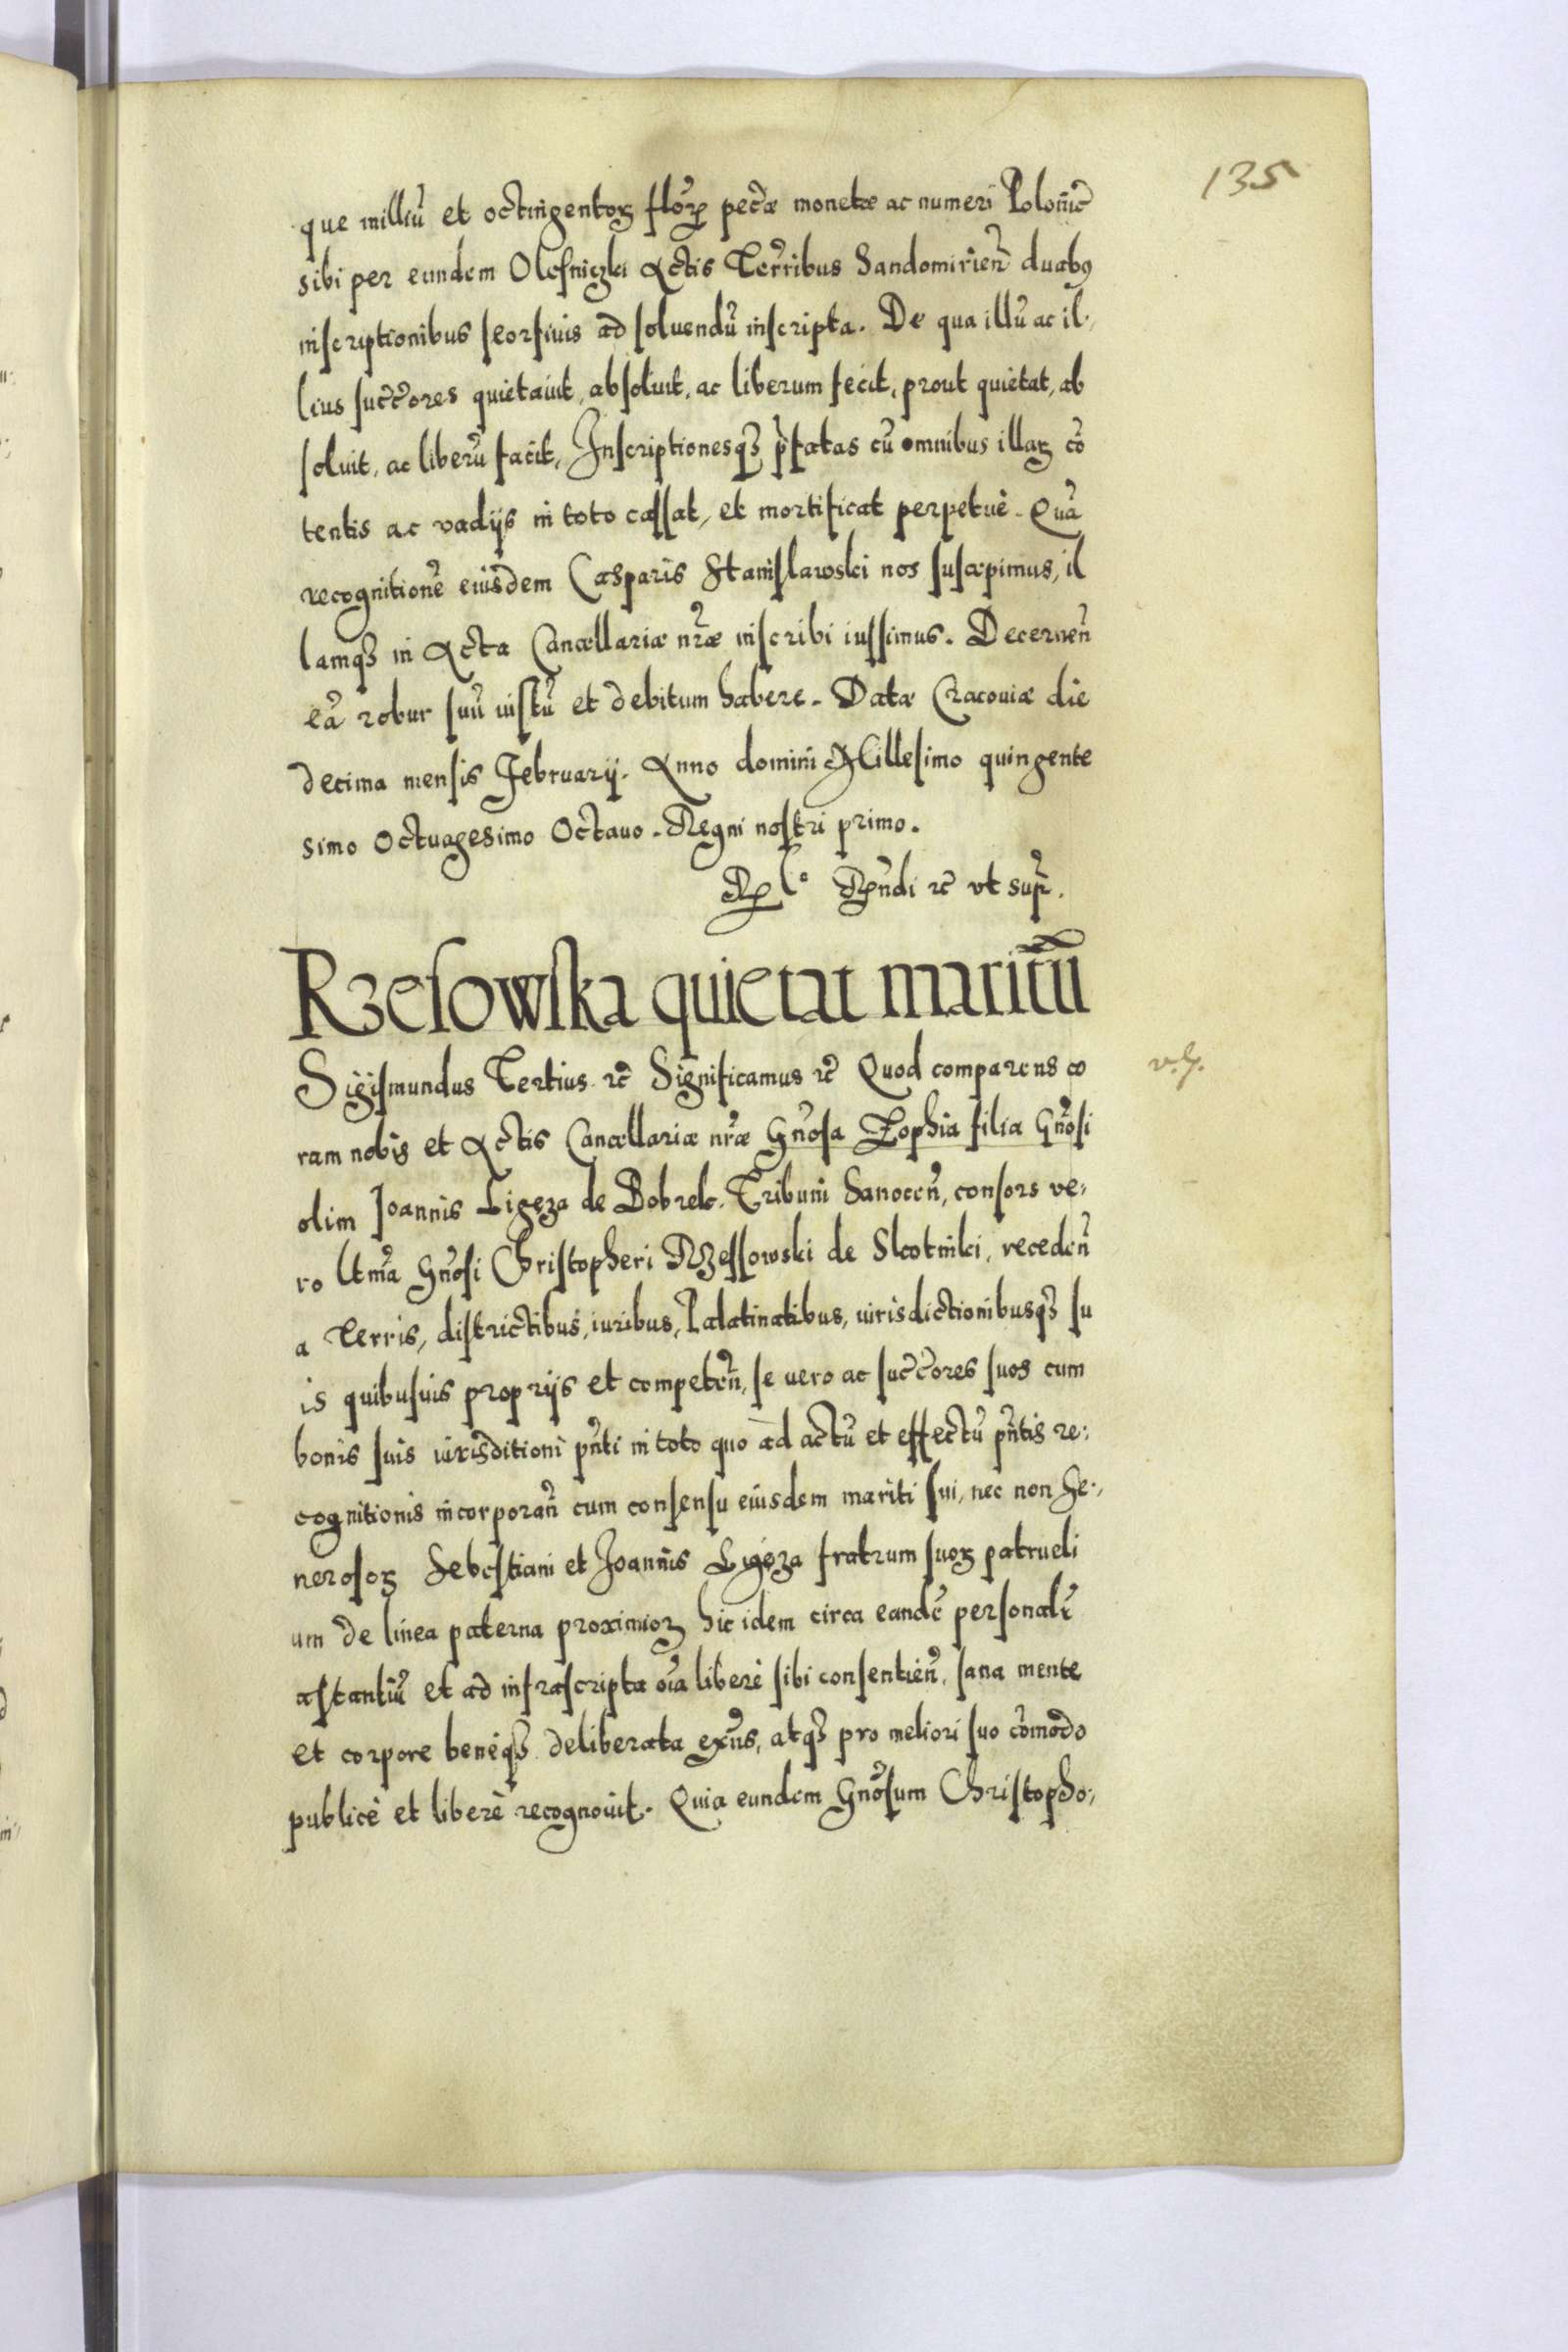 135
que milliũ et octingentoꝝ flor̃ pec̃æ monetæ ac numeri Polonic̃
sibi per eundem Olesniczki Actis Terr̃ibus Sandomirień duabꝯ
inscriptionibus seorsivis ad soluendũ inscripta. De qua illũ ac il-
lius succ̃ores quietauit, absoluit, ac liberum fecit, prout quietat, ab
soluit, ac liberũ facit, Inscriptionesqꝫ p̃fatas cũ omnibus illaꝝ cõ
tentis ac vadijs in toto cassat, et mortificat perpetuè. Quã
recognitionẽ eiusdem Casparis Stanislawski nos suscepimus, il
lamqꝫ in Acta Cancellariæ nr̃æ inscribi iussimus. Decerneñ
eã robur suũ iustũ et debitum habere. Datæ Cracouiæ die
decima mensis Februarij. Anno domini Millesimo quingente
simo Octuagesimo Octauo. Regni nostri primo.
Rñdi ꝛc̃ vt sup̃.
Rzesowska quietat maritũ
Sigismundus Tertius ꝛc̃ Significamus ꝛc̃ Quod comparens co
ram nobis et Actis Cancellariæ nr̃æ Gñosa Zophia filia Gñosi
olim Joannis Ligeza de Bobrek. Tribuni Sanoceñ, consors ve-
ro ltm̃a Gñosi Christopheri Rzessowski de Skotniki, recedeñ
a Terris, districtibus, iuribus, Palatinatibus, iurisdictionibusqꝫ su
is quibusuis proprijs et competeñ, se uero ac succ̃ores suos cum
bonis suis iurisditioni pñti in toto quo ad actũ et effectũ pñtis re-
cognitionis incorporañ cum consensu eiusdem mariti sui, nec non Ge-
nerosoꝝ Sebestiani et Joannis Ligęza fratrum suoꝝ patrueli
um de linea paterna proximioꝝ hic idem circa eandẽ personalr̃
astantiũ et ad infrascripta oĩa liberè sibi consentień, sana mente
et corpore beneqꝫ deliberata exñs, atqꝫ pro meliori suo cõmodo
publicè et liberè recognouit. Quia eundem Gñosum Christopho-